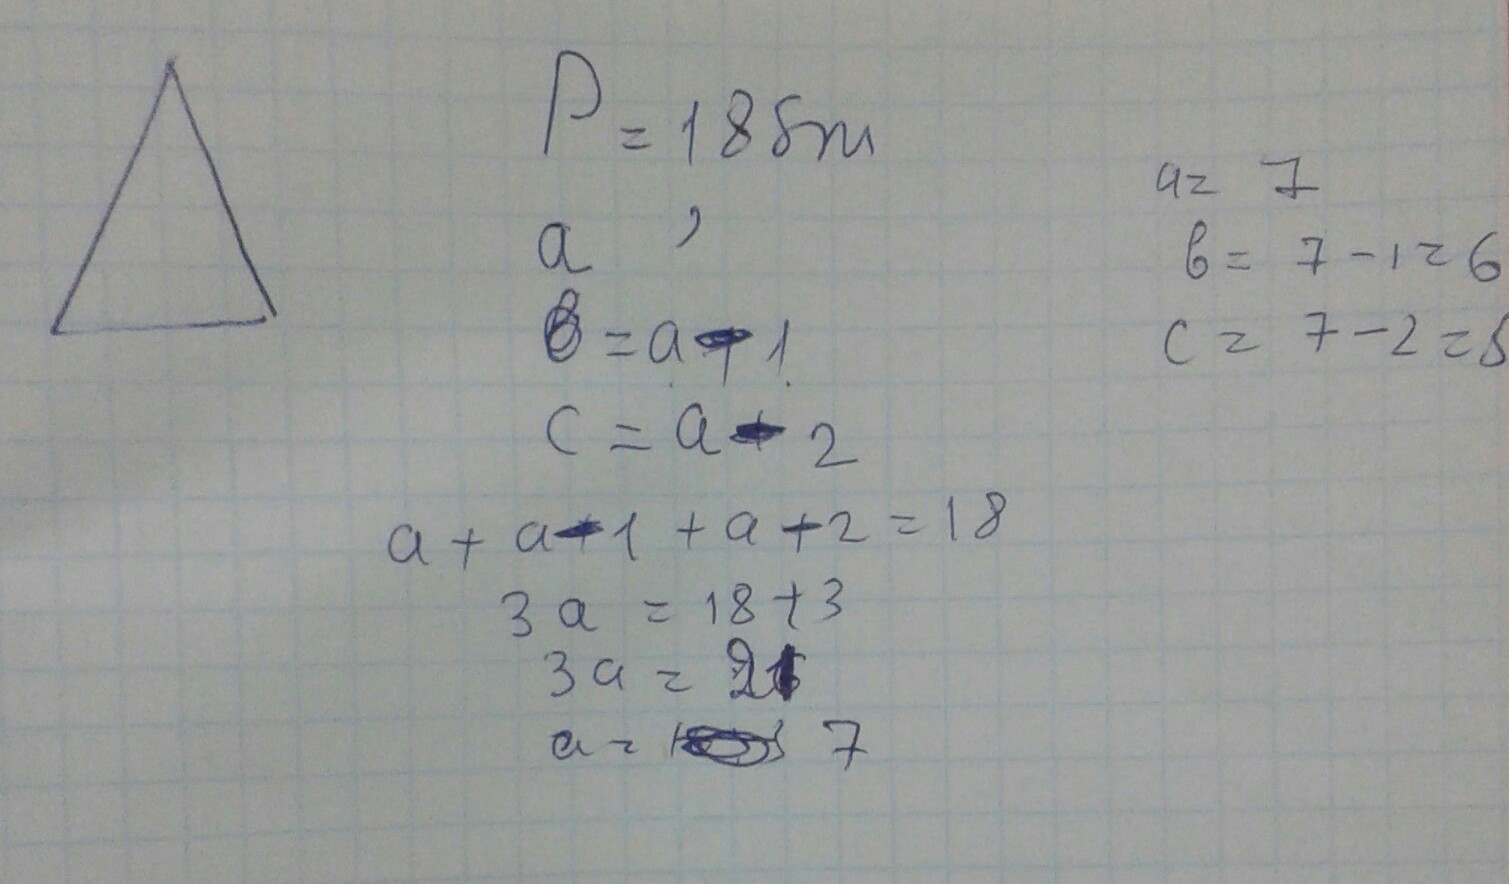 P = 18 дм
a ,
b = a - 1
c = a - 2
a + a - 1 + a + 2 = 18
3a = 18 + 3
3a = 21
a = 7
a = 7
b = 7 - 1 = 6
c = 7 - 2 = 5